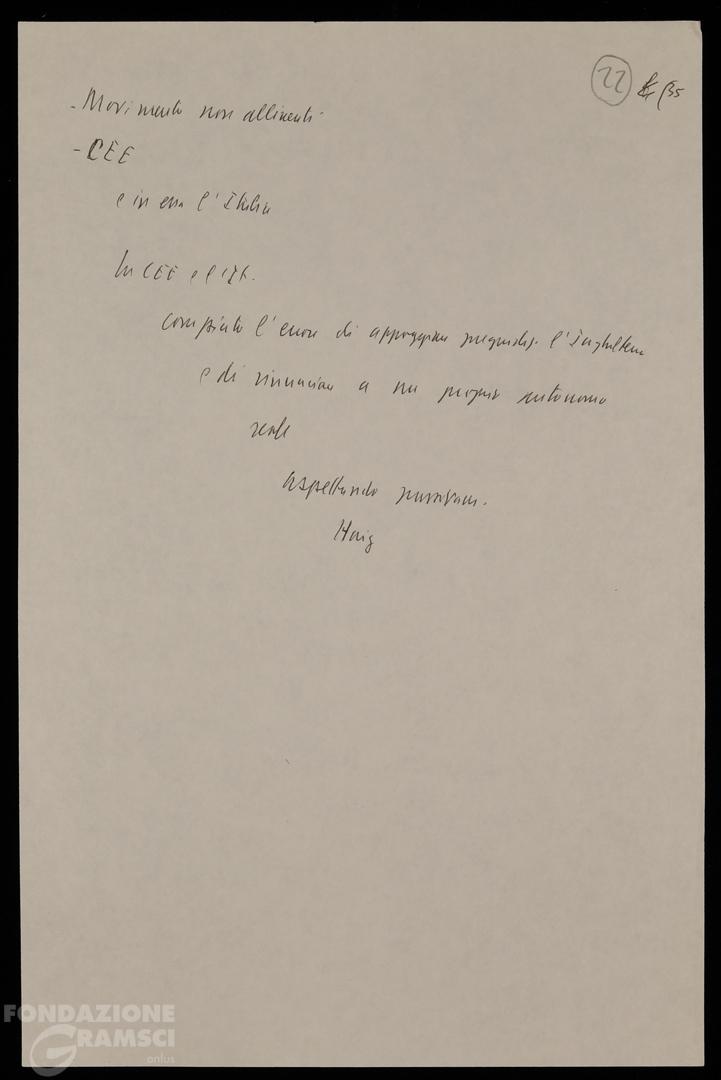 22
- Movimento non allineati -
- CEE
e in essa l'Italia
La CEE e l'It.
compiuto l'errore di appoggiare l'Inghilterra
e di rinunciare a un proprio autonomo
ruolo
aspettando
Haig
FONDAZIONE
GRAMSCI
onlus